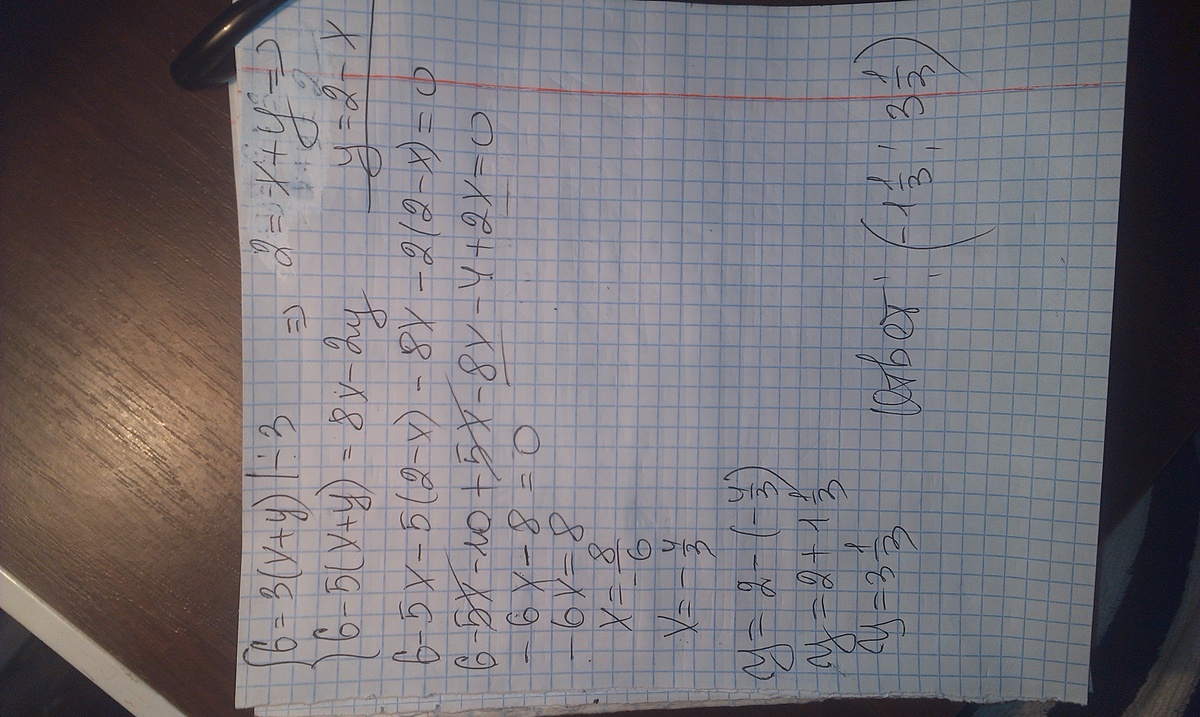 {6=3(x+y) |÷3 ⇒ 2=x+y ⇒
{6-5(x+y)=8x-2y y=2-x
6-5x-5(2-x)-8x-2(2-x)=0
6-5x-10+5x-8x-4+2x=0
-6x-8=0
-6x=8
x=8/-6
x=-4/3
y=2-(-4/3)
y=2+1 1/3
y=3 1/3
Ответ: (-1 1/3; 3 1/3)